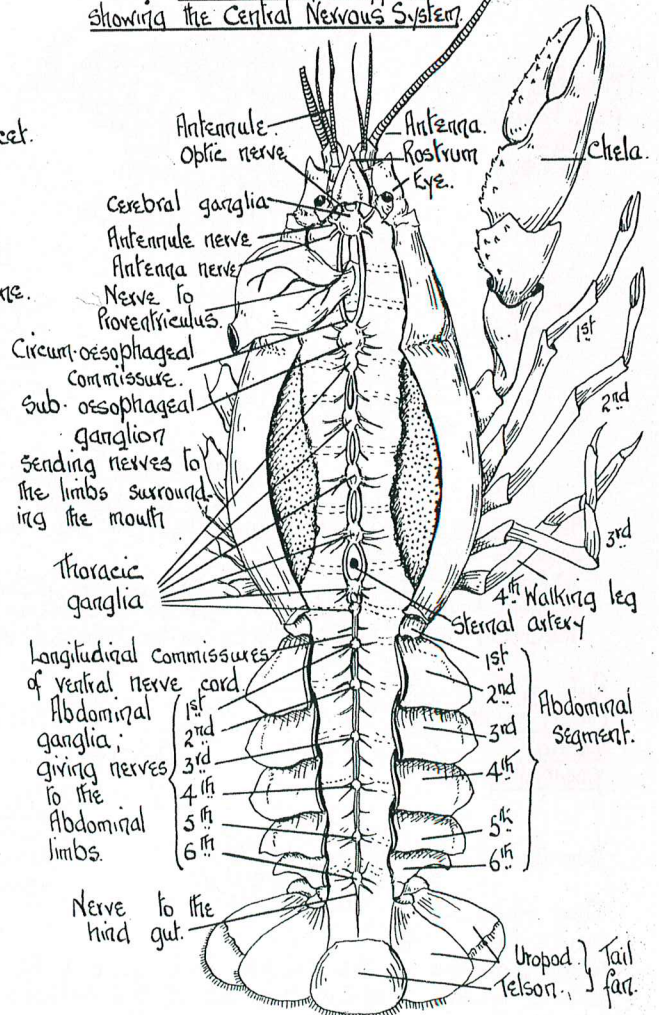 showing the Central Nervous System.
Antennule.
Optic nerve
Cerebral ganglia
Antennule nerve
Antenna nerve
Nerve to
Proventriculus.
Circum-oesophageal
commissure.
Sub-oesophageal
ganglion
sending nerves to
the limbs surround-
ing the mouth
Thoracic
ganglia
Longitudinal commissures
of ventral nerve cord.
Abdominal
ganglia;
giving nerves
to the
Abdominal
limbs.
1st
2nd
3rd
4th
5th
6th
Nerve to the
hind gut.
Antenna.
Rostrum
Eye.
Chela.
1st
2nd
3rd
4th Walking leg
Sternal artery
1st
2nd
3rd
4th
5th
6th
Abdominal
Segment.
Uropod.
Telson.
Tail
fan.